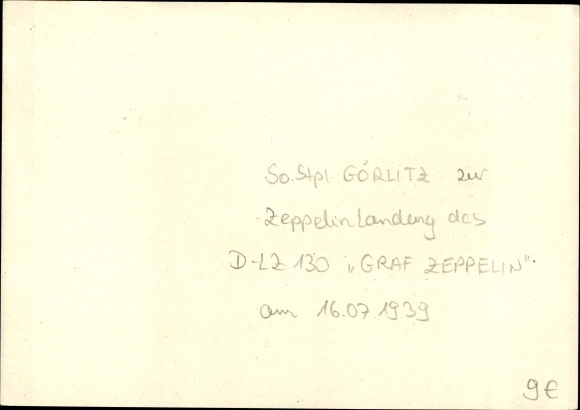 So.Stpl GÖRLITZ zur
Zeppelinlandung des
D-LZ 130 „GRAF ZEPPELIN"
am 16.07.1939
9€